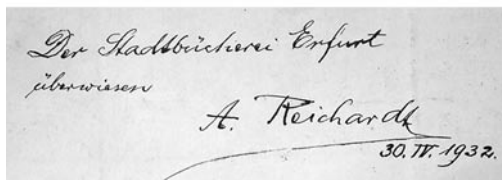 Der Stadtbücherei Erfurt
überwiesen
A. Reichardt
30. IV. 1932.